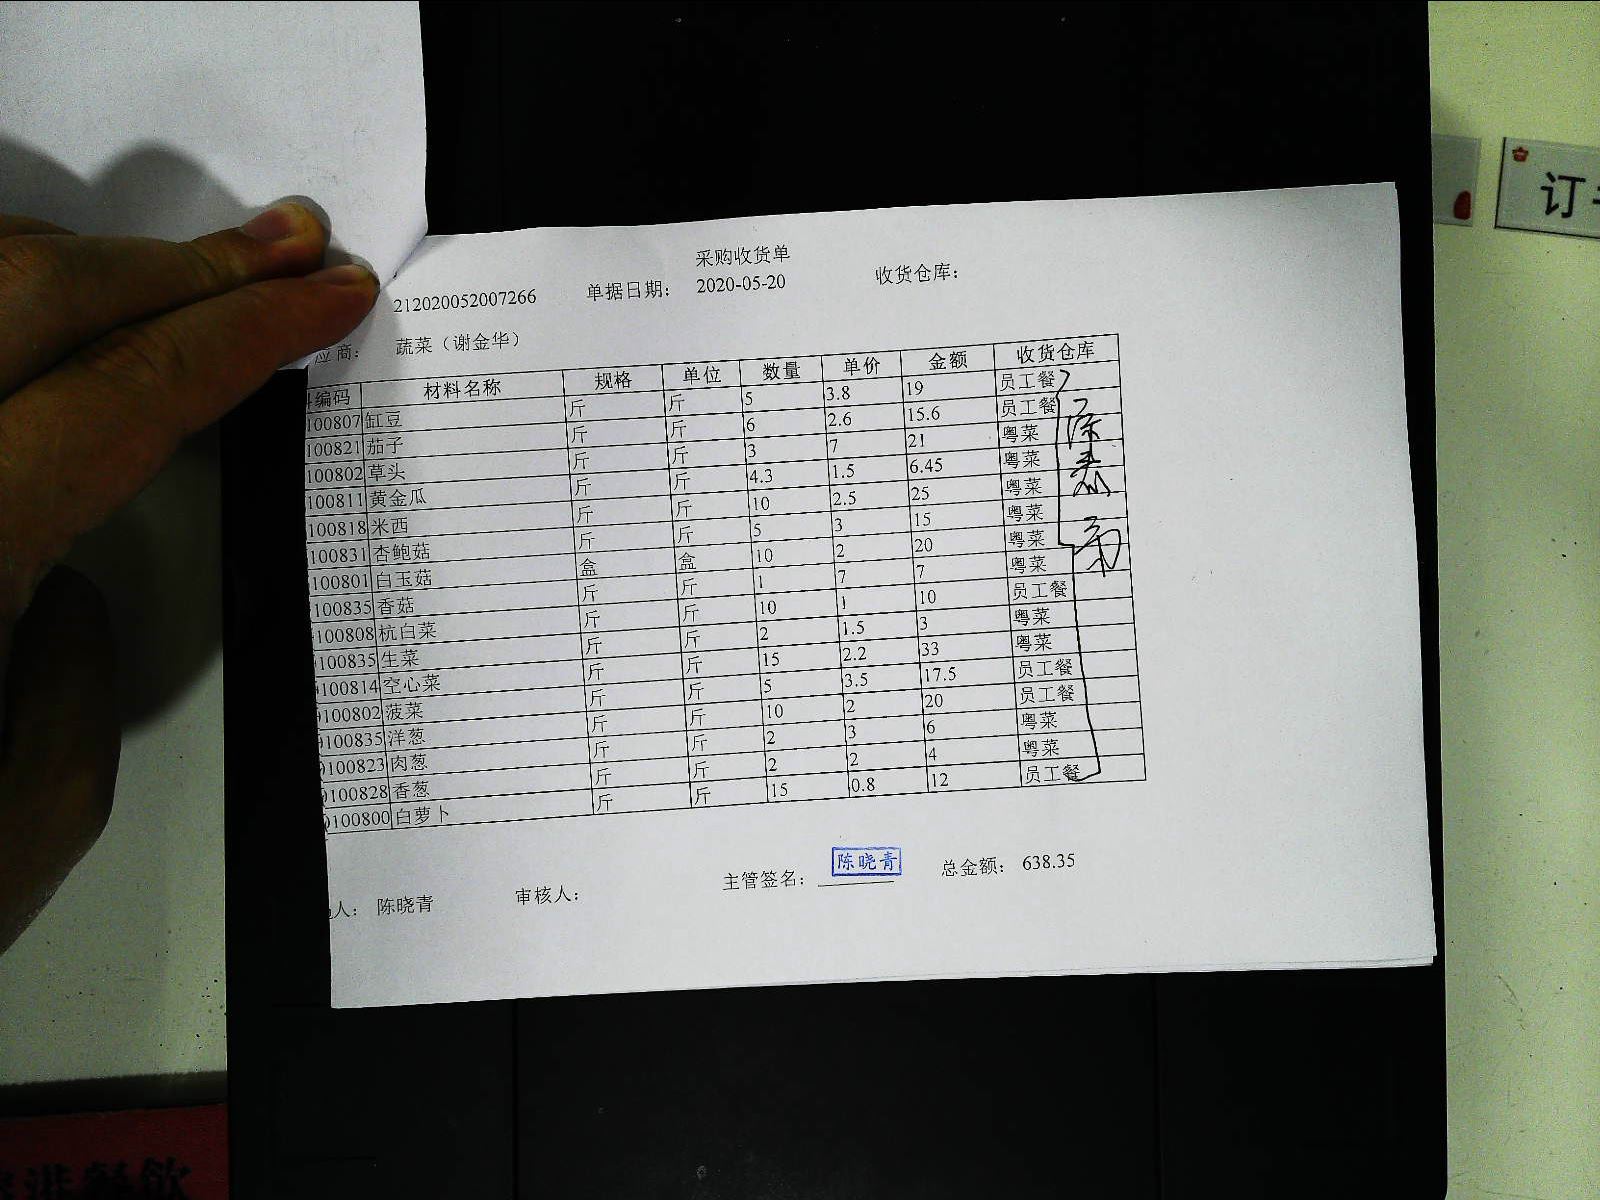 订
采购收货单
212020052007266 单据日期： 2020-05-20 收货仓库：
应商： 蔬菜（谢金华）
编码 材料名称 规格 单位 数量 单价 金额 收货仓库
100807 缸豆 斤 斤 5 3.8 19 员工餐
100821 茄子 斤 斤 6 2.6 15.6 员工餐
100802 草头 斤 斤 3 7 21 粤菜
100811 黄金瓜 斤 斤 4.3 1.5 6.45 粤菜
100818 米西 斤 斤 10 2.5 25 粤菜
100831 杏鲍菇 斤 斤 5 3 15 粤菜
100801 白玉菇 盒 盒 10 2 20 粤菜
100835 香菇 斤 斤 1 7 7 粤菜
100808 杭白菜 斤 斤 10 1 10 员工餐
100835 生菜 斤 斤 2 1.5 3 粤菜
100814 空心菜 斤 斤 15 2.2 33 粤菜
0100802 菠菜 斤 斤 5 3.5 17.5 员工餐
0100835 洋葱 斤 斤 10 2 20 员工餐
0100823 肉葱 斤 斤 2 3 6 粤菜
0100828 香葱 斤 斤 2 2 4 粤菜
0100800 白萝卜 斤 斤 15 0.8 12 员工餐
人： 陈晓青 审核人： 主管签名： 陈晓青 总金额： 638.35
港餐饮